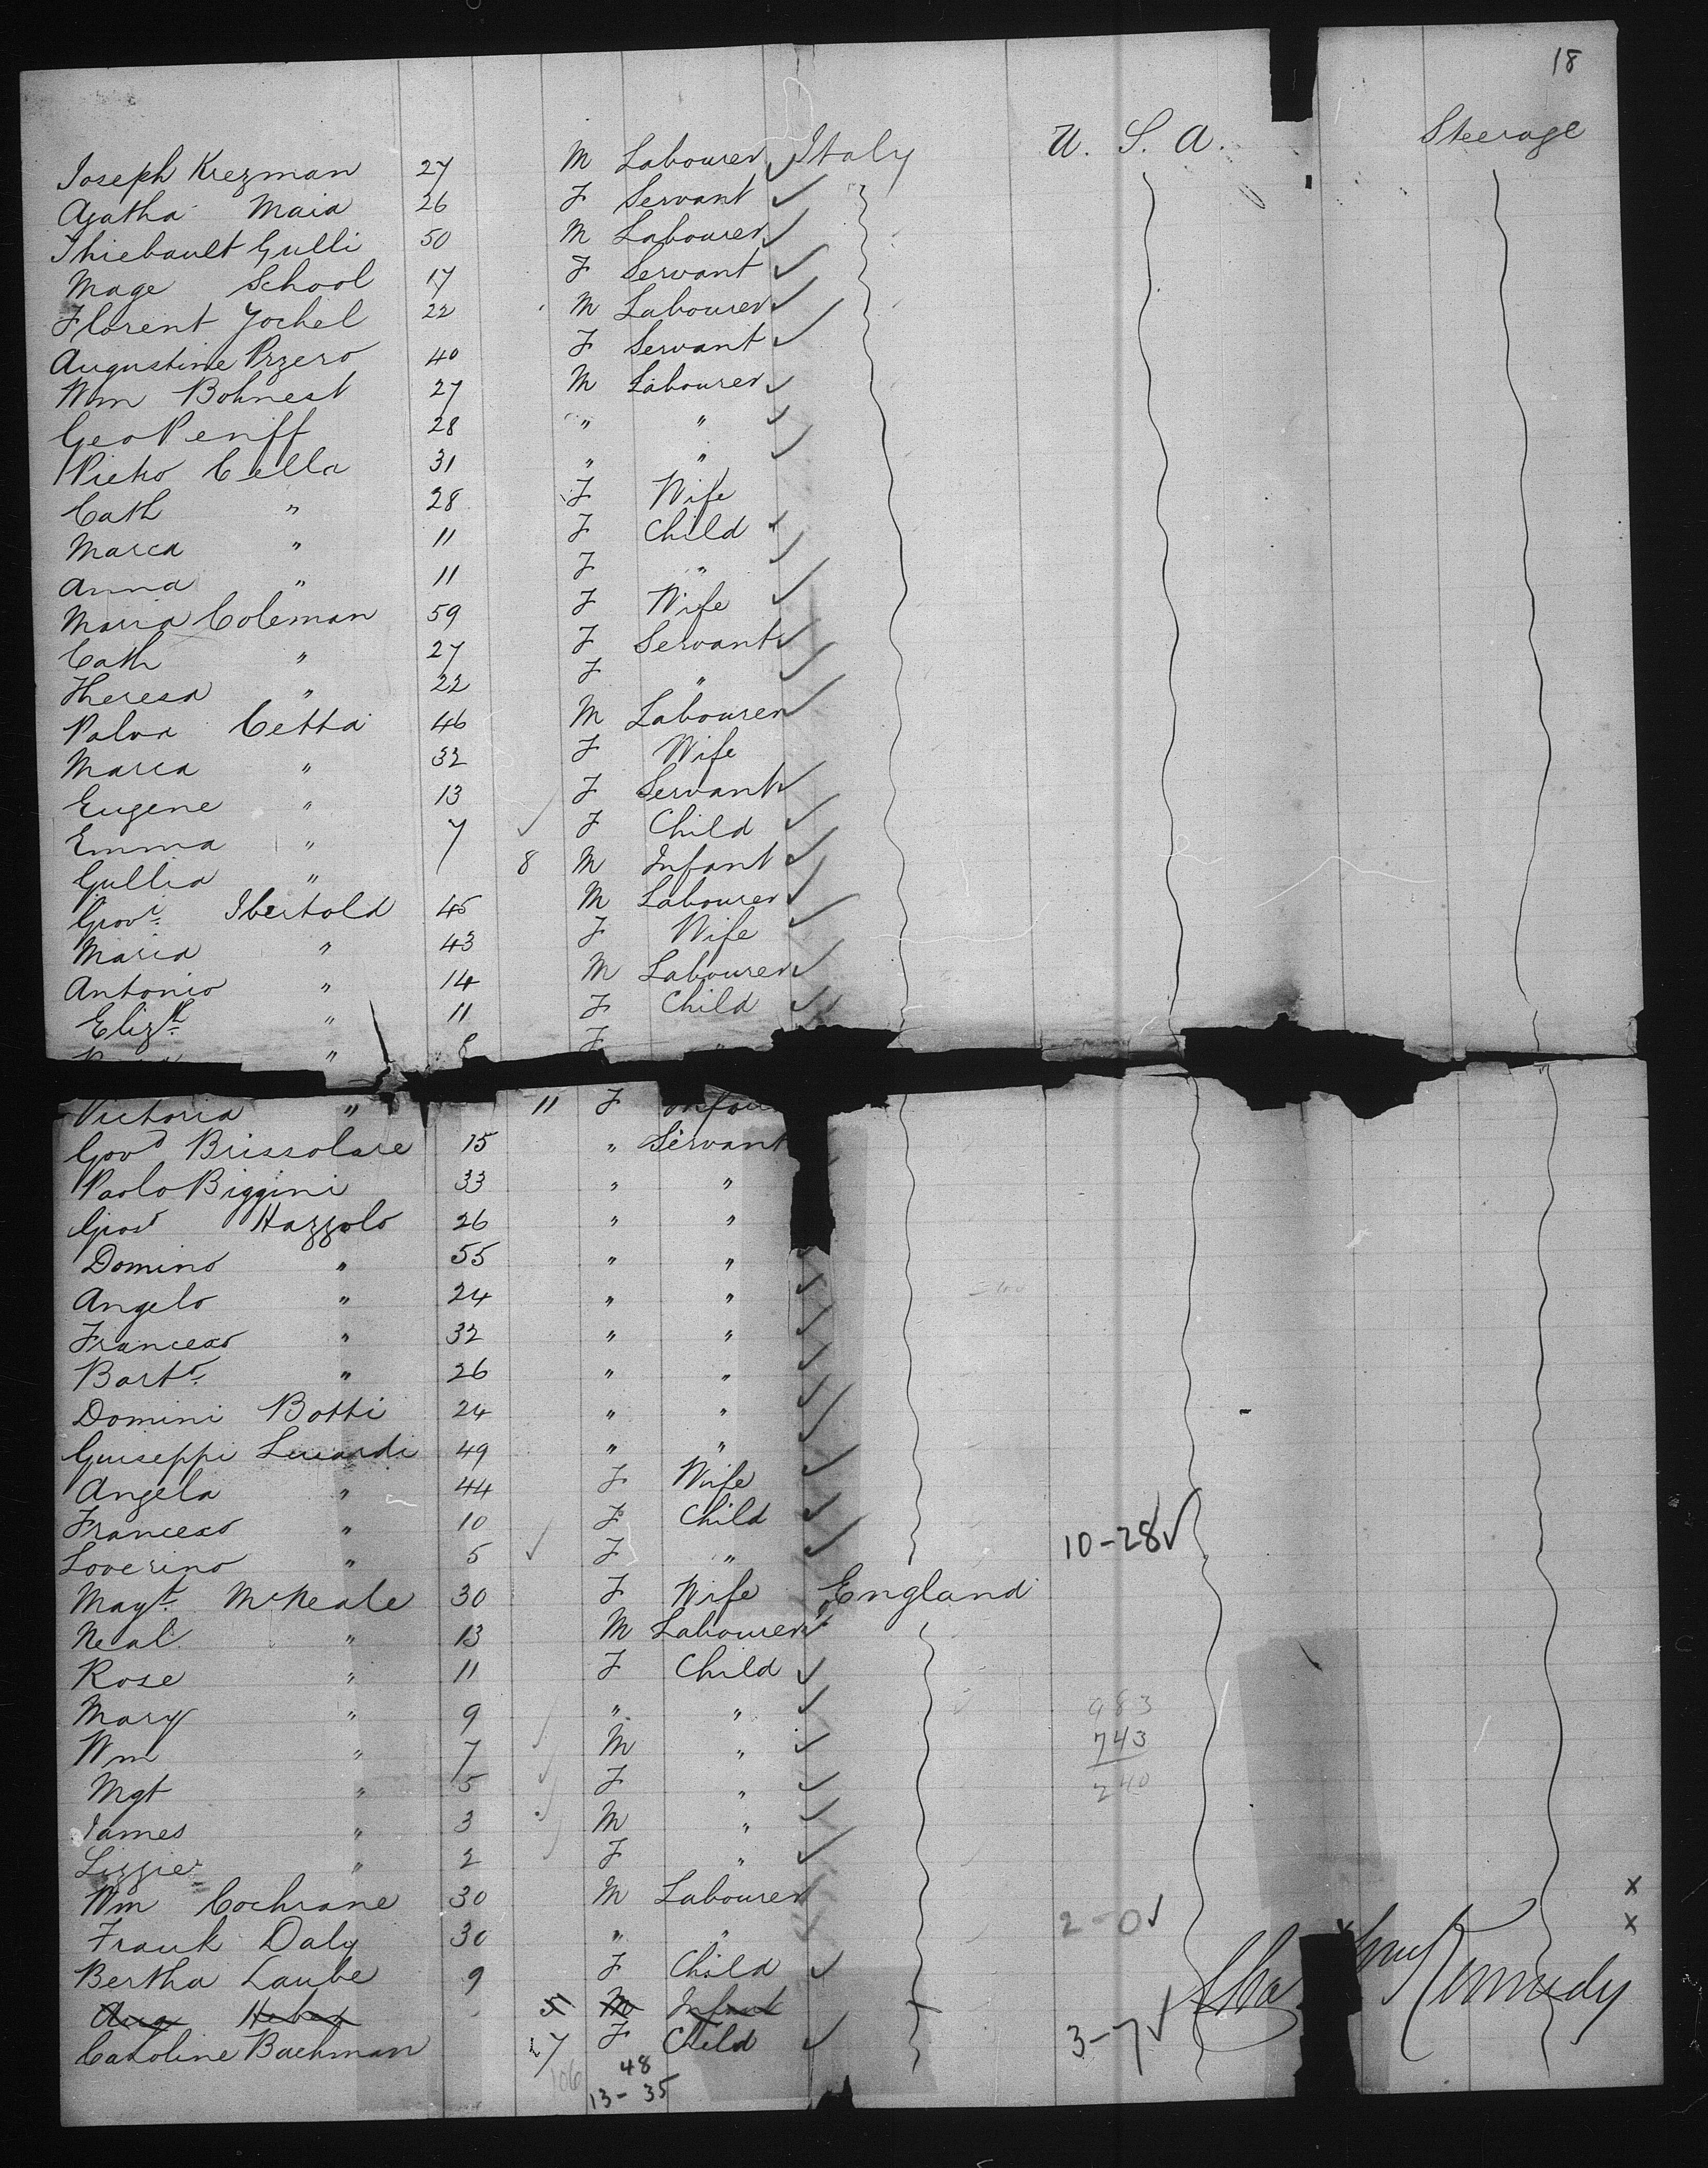 18
Joseph Krezman 27 M Labourer Italy U. S. A. Steerage
Agatha Maia 26 F Servant
Thiebault Gulli 50 M Labourer
Mage School 17 F Servant
Florent Jochel 22 M Labourer
Augustine Przero 40 F Servant
Wm Bohnest 27 M Labourer
Geo Penff 28 " "
Pietro Cella 31 " "
Cath " 28 F Wife
Marca " 11 F Child
Anna " 11 F "
Maria Coleman 59 F Wife
Cath " 27 F Servant
Theresa " 22 F "
Palva Cetta 46 M Labourer
Marca " 32 F Wife
Eugene " 13 F Servant
Emma " 7 F Child
Gullia " 8 M Infant
Giovi Ibertold 45 M Labourer
Maria " 43 F Wife
Antonio " 14 M Labourer
Elizth " 11 F Child
" F "
Victoria " 11 F
Giovi Brissolare 15 " Servant
Paolo Biggini 33 " "
Giovi Hazzolo 26 " "
Domino " 55 " "
Angelo " 24 " "
Francesco " 32 " "
Barto " 26 " "
Domini Botti 24 " "
Guiseppi 49 " "
Angela " 44 F Wife
Francesco " 10 F Child
Loverino " 5 F " 10-28
Magt McNeale 30 F Wife England
Neal " 13 M Labourer
Rose " 11 F Child
Mary " 9 " " 983
Wm " 7 M " 743
Mgt " 5 F " 240
James " 3 M "
Lizzie " 2 F "
Wm Cochrane 30 M Labourer x
Frank Daly 30 " " 2-0 x
Bertha Laube 9 F Child Kennedy
M Infant
Caroline Bachman 7 F Child 3-7
106 48
13-35